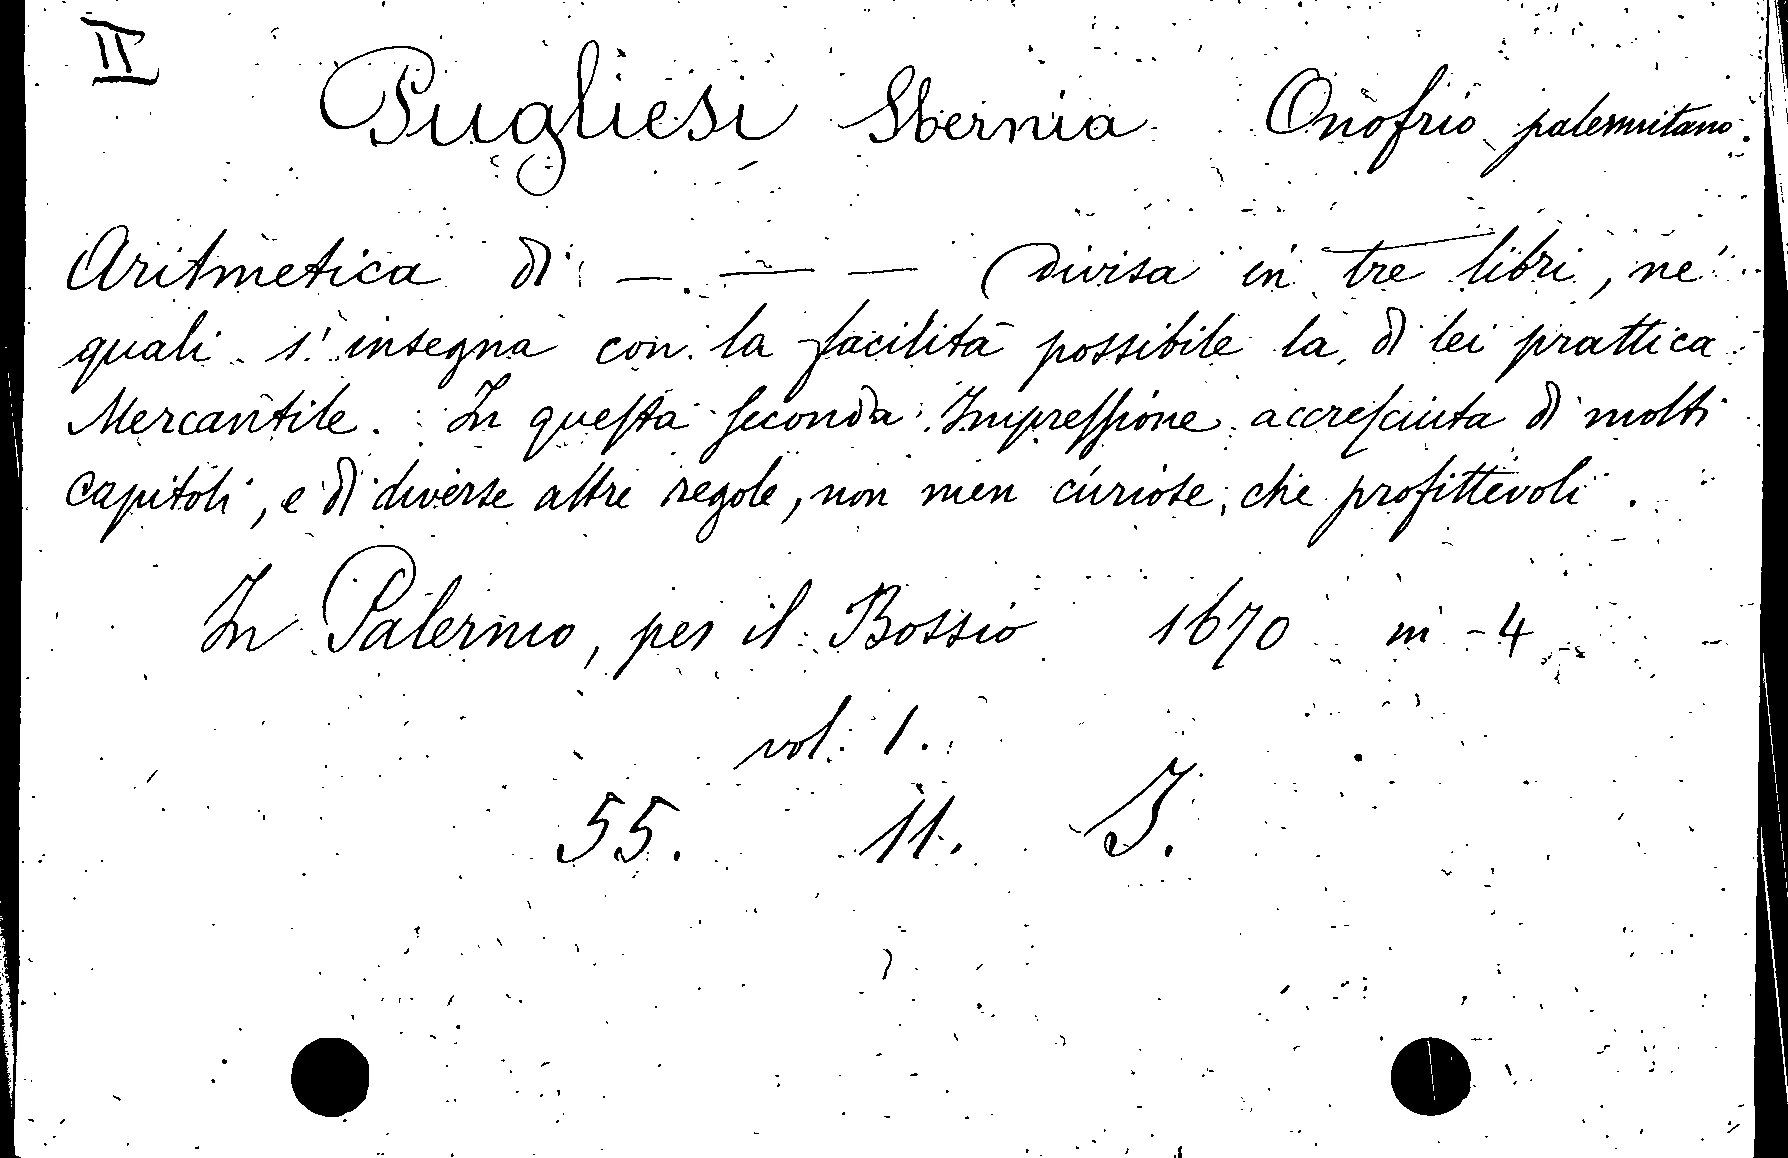 II
Pugliesi Sbernia Onofrio palermitano.
Aritmetica di — . — — Divisa in tre libri, ne'
quali s'insegna con la facilità possibile la di lei prattica
Mercantile. In queſta ſeconda Impreſſione accreſciuta di molti
capitoli, e di diverse altre regole, non men curiose, che profittevoli.
In Palermo, per il Bossio 1670 in -4
vol. 1.
55. 11. J.